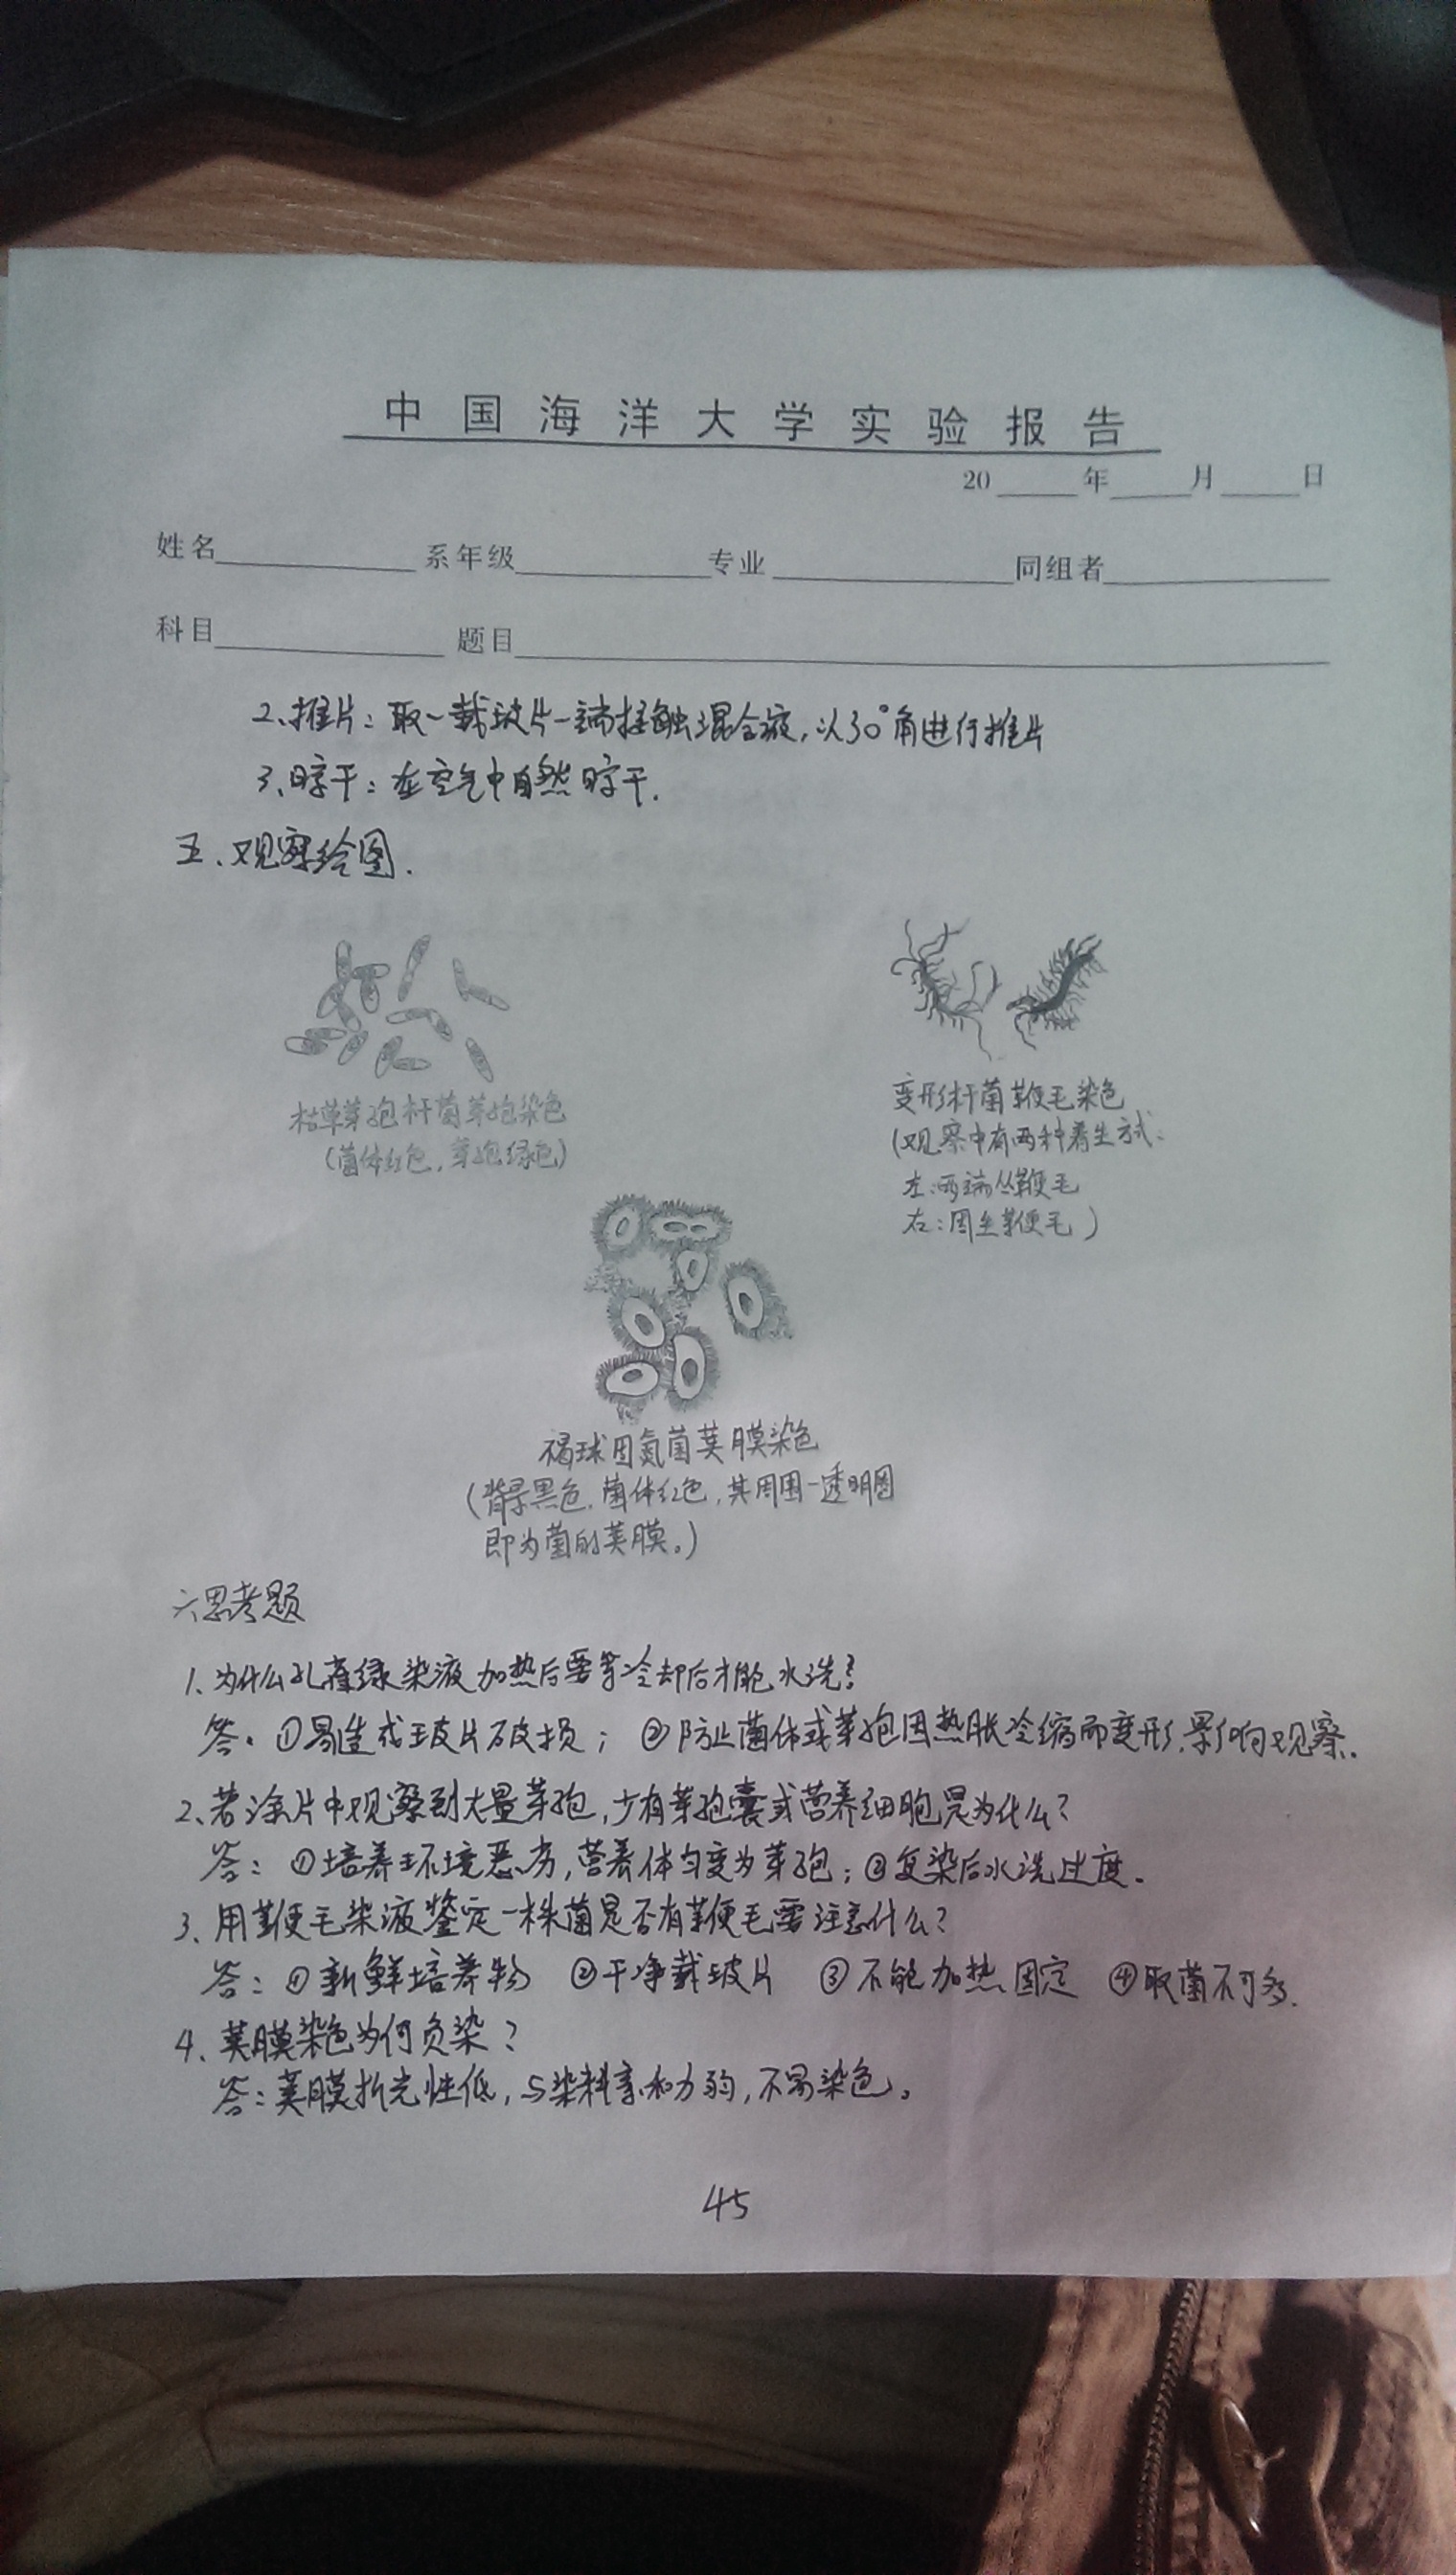 中国海洋大学实验报告
20 年 月 日
姓名 系年级 专业 同组者
科目 题目
2、推片：取一载玻片一端接触混合液，以30°角进行推片
3、晾干：在空气中自然晾干.
五、观察绘图.
枯草芽孢杆菌芽孢染色
(菌体红色，芽孢绿色)
变形杆菌鞭毛染色
(观察中有两种着生方式:
左:两端丛鞭毛
右:周生鞭毛)
褐球固氮菌荚膜染色
(背景黑色，菌体红色，其周围一透明圈
即为菌的荚膜。)
六思考题
1、为什么孔雀绿染液加热后要等冷却后才能水洗?
答. ①易造成玻片破损; ②防止菌体或芽孢因热胀冷缩而变形,影响观察.
2、若涂片中观察到大量芽孢,少有芽孢囊或营养细胞是为什么?
答: ①培养环境恶劣,营养体均变为芽孢; ②复染后水洗过度.
3、用鞭毛染液鉴定一株菌是否有鞭毛要注意什么?
答: ①新鲜培养物 ②干净载玻片 ③不能加热固定 ④取菌不可多.
4、荚膜染色为何负染?
答:荚膜折光性低,与染料亲和力弱,不易染色。
45